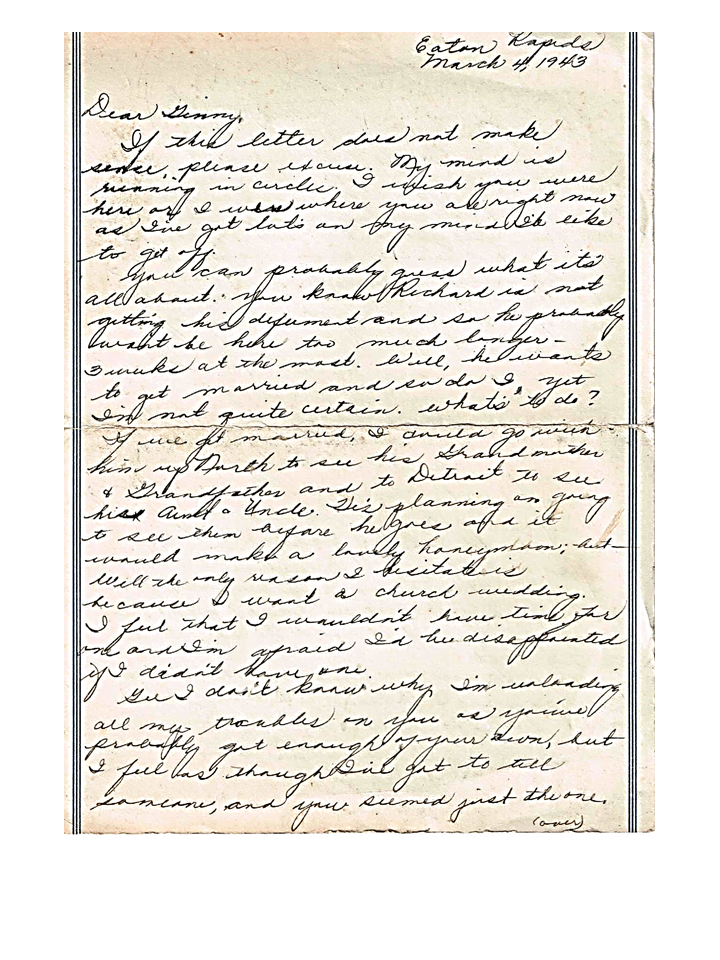 Eaton Rapids
March 4, 1943
Dear Ginny,
If this letter does not make
sense, please excuse. My mind is
running in circles. I wish you were
here or I were where you are right now
as I've got lots on my mind I'd like
to get off.
You can probably guess what it's
all about. You know Richard is not
getting his deferment and so he probably
won't be here too much longer –
3 weeks at the most. Well, he wants
to get married and so do I, yet
I'm not quite certain. What's to do?
If we get married, I could go with
him up North to see his Grandmother
& Grandfather and to Detroit to see
his Aunt & Uncle. He's planning on going
to see them before he goes and it
would make a lovely honeymoon; but –
Well the only reason I hesitate is
because I want a church wedding.
I feel that I wouldn't have time for
one and I'm afraid I'd be disappointed
if I didn't have one.
Gee I don't know why I'm unloading
all my troubles on you as you've
probably got enough of your own, but
I feel as though I've got to tell
someone, and you seemed just the one.
(over)